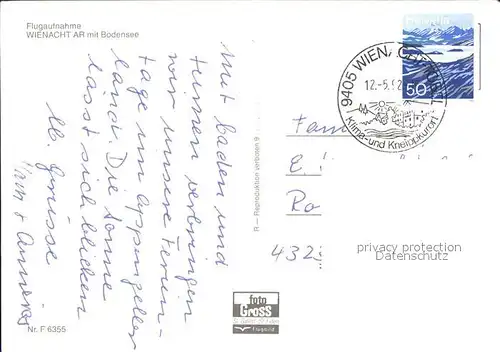 Flugaufnahme
WIENACHT AR mit Bodensee
mit baden und
turnen verbringen
wir unsere Ferien-
tage im Appenzeller-
land. Die Sonne
lässt sich blicken
lb. Grüsse
R — Reproduktion verboten 9
Helvetia
50
9405 WIENACHT
12.-5.
Klima- und Kneippkurort
Fam
E.
Ro
432
privacy protection
Datenschutz
foto
Gross
Flugbild
Nr. F 6355